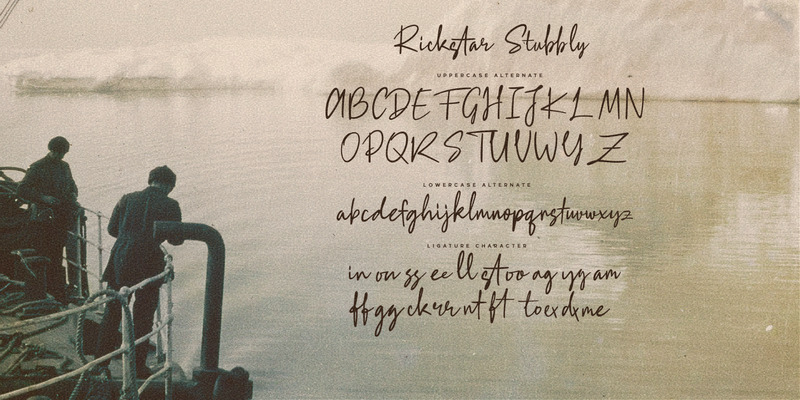 Rickstar Stubbly
UPPERCASE ALTERNATE
ABCDEFGHIJKLMN
OPQRSTUVWYZ
LOWERCASE ALTERNATE
abcdefghijklmnopqrstuvwxyz
LIGATURE CHARACTER
in on ss ee ll st oo ag yy am
ff gg ck rr nt ft to ex dx me